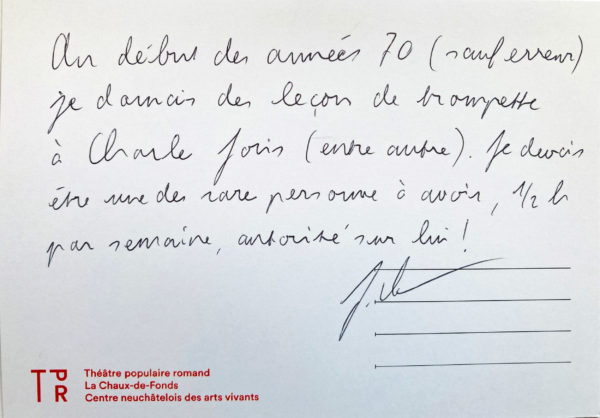 Au début des années 70 (sauf erreur)
je donnais des leçon de trompette
à Charle Joris (entre autre). Je devais
être une des rare personne à avoir, 1/2 h
par semaine, autorité sur lui !
TPR
Théâtre populaire romand
La Chaux-de-Fonds
Centre neuchâtelois des arts vivants